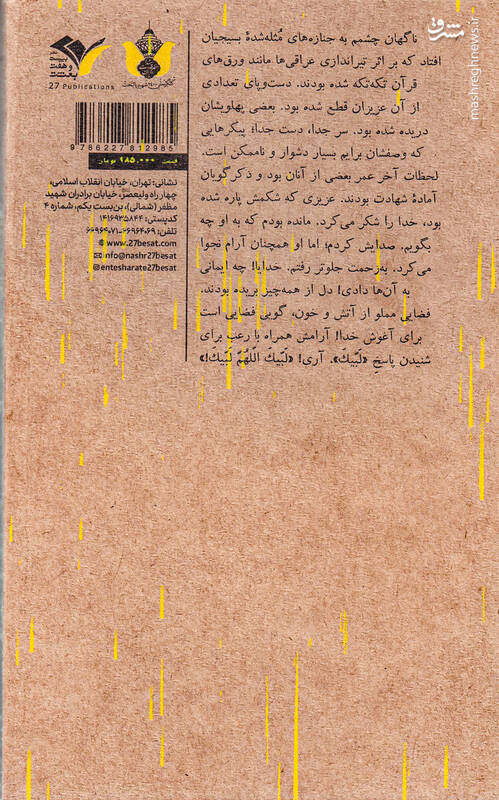 ناگهان چشمم به جنازه‌های مُثله‌شدهٔ بسیجیان
افتاد که بر اثر تیراندازی عراقی‌ها مانند ورق‌های
قرآن تکه‌تکه شده بودند. دست‌وپای تعدادی
از آن عزیزان قطع شده بود. بعضی پهلویشان
دریده شده بود. سر جدا، دست جدا؛ پیکرهایی
که وصفشان برایم بسیار دشوار و ناممکن است.
لحظات آخر عمر بعضی از آنان بود و ذکرگویان
آمادهٔ شهادت بودند. عزیزی که شکمش پاره شده
بود، خدا را شکر می‌کرد. مانده بودم که به او چه
بگویم. صدایش کردم؛ اما او همچنان آرام نجوا
می‌کرد. به‌زحمت جلوتر رفتم. خدایا! چه ایمانی
به آن‌ها دادی! دل از همه‌چیز بریده بودند.
فضایی مملو از آتش و خون، گویی فضایی است
برای آغوش خدا! آرامش همراه با رعب برای
شنیدن پاسخِ «لَبّیک». آری! «لَبّیكَ اللّهُمّ لَبّیكَ!»
بیست و هفت بعثت
27 Publications
9 786227 812985
قیمت: ۱۸۵,۰۰۰ تومان
نشانی: تهران، خیابان انقلاب اسلامی،
چهارراه ولیعصر، خیابان برادران شهید
مظفر (شمالی)، بن‌بست یکم، شماره ۴
کدپستی: ۱۴۱۶۹۳۵۸۴۴
تلفن: ۶۶۹۶۴۰۶۹-۶۶۹۶۴۰۷۱
www.27besat.com
info@nashr27besat
@entesharate27besat
مشرق
mashreghnews.ir